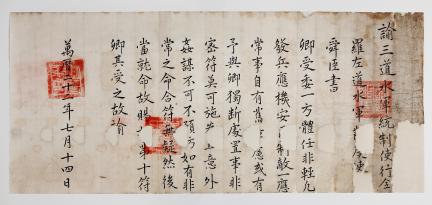 諭三道水軍統制使行全
羅左道水軍
舜臣書
卿受委一方體任非輕凡
發兵應機安 制敵一應
常事自有舊 慮或有
予與卿獨斷處置事非
密符莫可施 意外
姦謀不可不預防如有非
常之命合符無疑然後
當就命故賜 第十符
卿其受之故諭
萬曆二十 年七月十四日